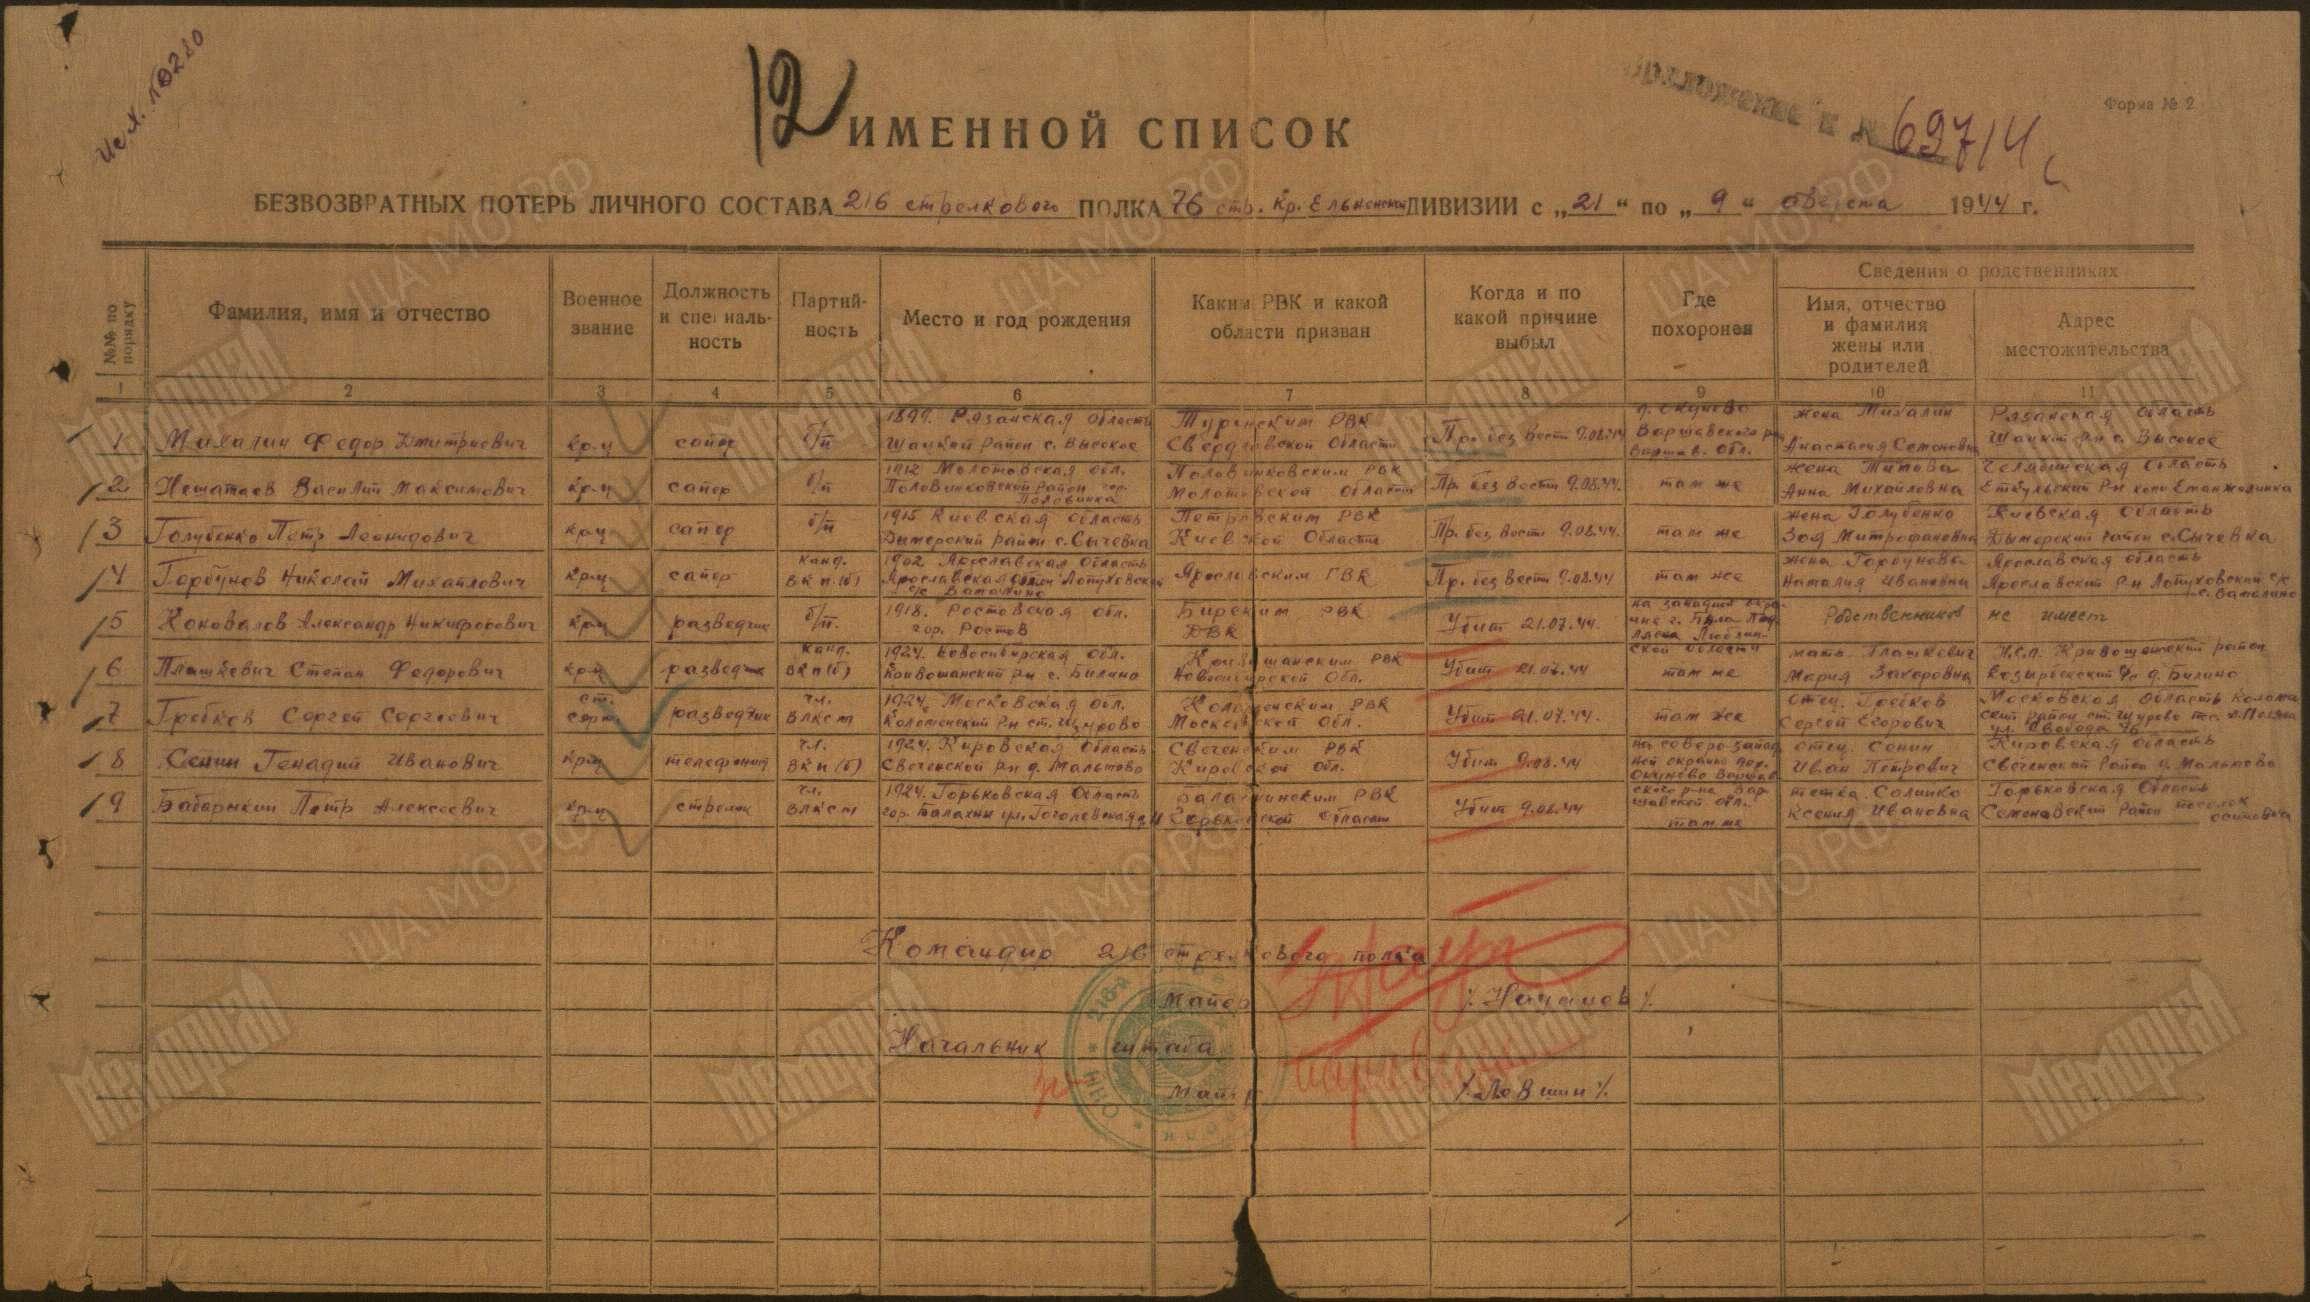 Исх. №0220
12
Приложение к № 69714 с
Форма № 2
ИМЕННОЙ СПИСОК
БЕЗВОЗВРАТНЫХ ПОТЕРЬ ЛИЧНОГО СОСТАВА 216 стрелкового ПОЛКА 76 стр. Кр. Ельнинской ДИВИЗИИ с „21“ по „9“ августа 1944 г.
№№ по порядку
Фамилия, имя и отчество
Военное звание
Должность и специальность
Партийность
Место и год рождения
Каким РВК и какой области призван
Когда и по какой причине выбыл
Где похоронен
Сведения о родственниках
Имя, отчество и фамилия жены или родителей
Адрес местожительства
1 2 3 4 5 6 7 8 9 10 11
1 Михалин Федор Дмитриевич кр-ц сапер б/п 1897. Рязанская область Шацкой район с. Высокое Туринским РВК Свердловской области Пр. без вести 9.08.44 д. Окунево Варшавского р-на Варшав. обл. жена Михалин Анастасия Семеновна Рязанская область Шацкий р-н с. Высокое
2 Василий Максимович кр-ц сапер б/п 1912 Молотовская обл. Половинковский район гор. Половинка Половинковским РВК Молотовской области Пр. без вести 9.08.44. там же жена Титова Анна Михайловна Челябинская область Еткульский р-н
3 Голубенко Петр Леонидович кр-ц сапер б/п 1915 Киевская область Дымерский район с. Сычевка Петровским РВК Киевской области Пр. без вести 9.08.44. там же жена Голубенко Зоя Митрофановна Киевская область Дымерский район с. Сычевка
4 Горбунов Николай Михайлович кр-ц сапер канд. ВКП(б) 1902 Ярославская область Ярославская Лопуховский с/с Ярославским ГВК Пр. без вести 9.08.44 там же жена Горбунова Наталия Ивановна Ярославская область Ярославский р-н Лопуховский с/с
5 Коновалов Александр Никифорович кр-ц разведчик б/п. 1918. Ростовская обл. гор. Ростов Бирским РВК ДВК Убит 21.07.44. на западной окраине г. Бяла Подляска Люблинской области Родственников не имеет
6 Плашкевич Степан Федорович кр-ц разведчик канд. ВКП(б) 1924. Новосибирская обл. Кривошанский р-н с. Билино Кривошанским РВК Новосибирской обл. Убит 21.07.44 там же мать Плашкевич Мария Захаровна Н.С.О. Кривошеинский район д. Билино
7 Гребков Сергей Сергеевич ст. серж. разведчик чл. ВЛКСМ 1924. Московская обл. Коломенский р-н ст. Щурово Коломенским РВК Московской обл. Убит 21.07.44. там же отец. Гребков Сергей Егорович Московская область Коломенский район ст. Щурово ул. Свобода 76
8 Сенин Генадий Иванович кр-ц телефонист чл. ВКП(б) 1924. Кировская область Свеченской р-н д. Мальково Свеченским РВК Кировской обл. Убит 9.08.44 на северо-западной окраине дер. Окунево Варшавского р-на Варшавской обл. отец. Сенин Иван Петрович Кировская область Свеченский район д. Мальково
9 Бабарыкин Петр Алексеевич кр-ц стрелок чл. ВЛКСМ 1924. Горьковская область гор. Балахны ул. Гоголевская Балахнинским РВК Горьковской области Убит 9.08.44 там же тетка. Салинко Ксения Ивановна Горьковская область Семеновский район поселок
Командир 216 стрелкового полка
Майор /Качанов/
Начальник штаба
Майор /Ловшин/
Мемориал
ЦА МО РФ